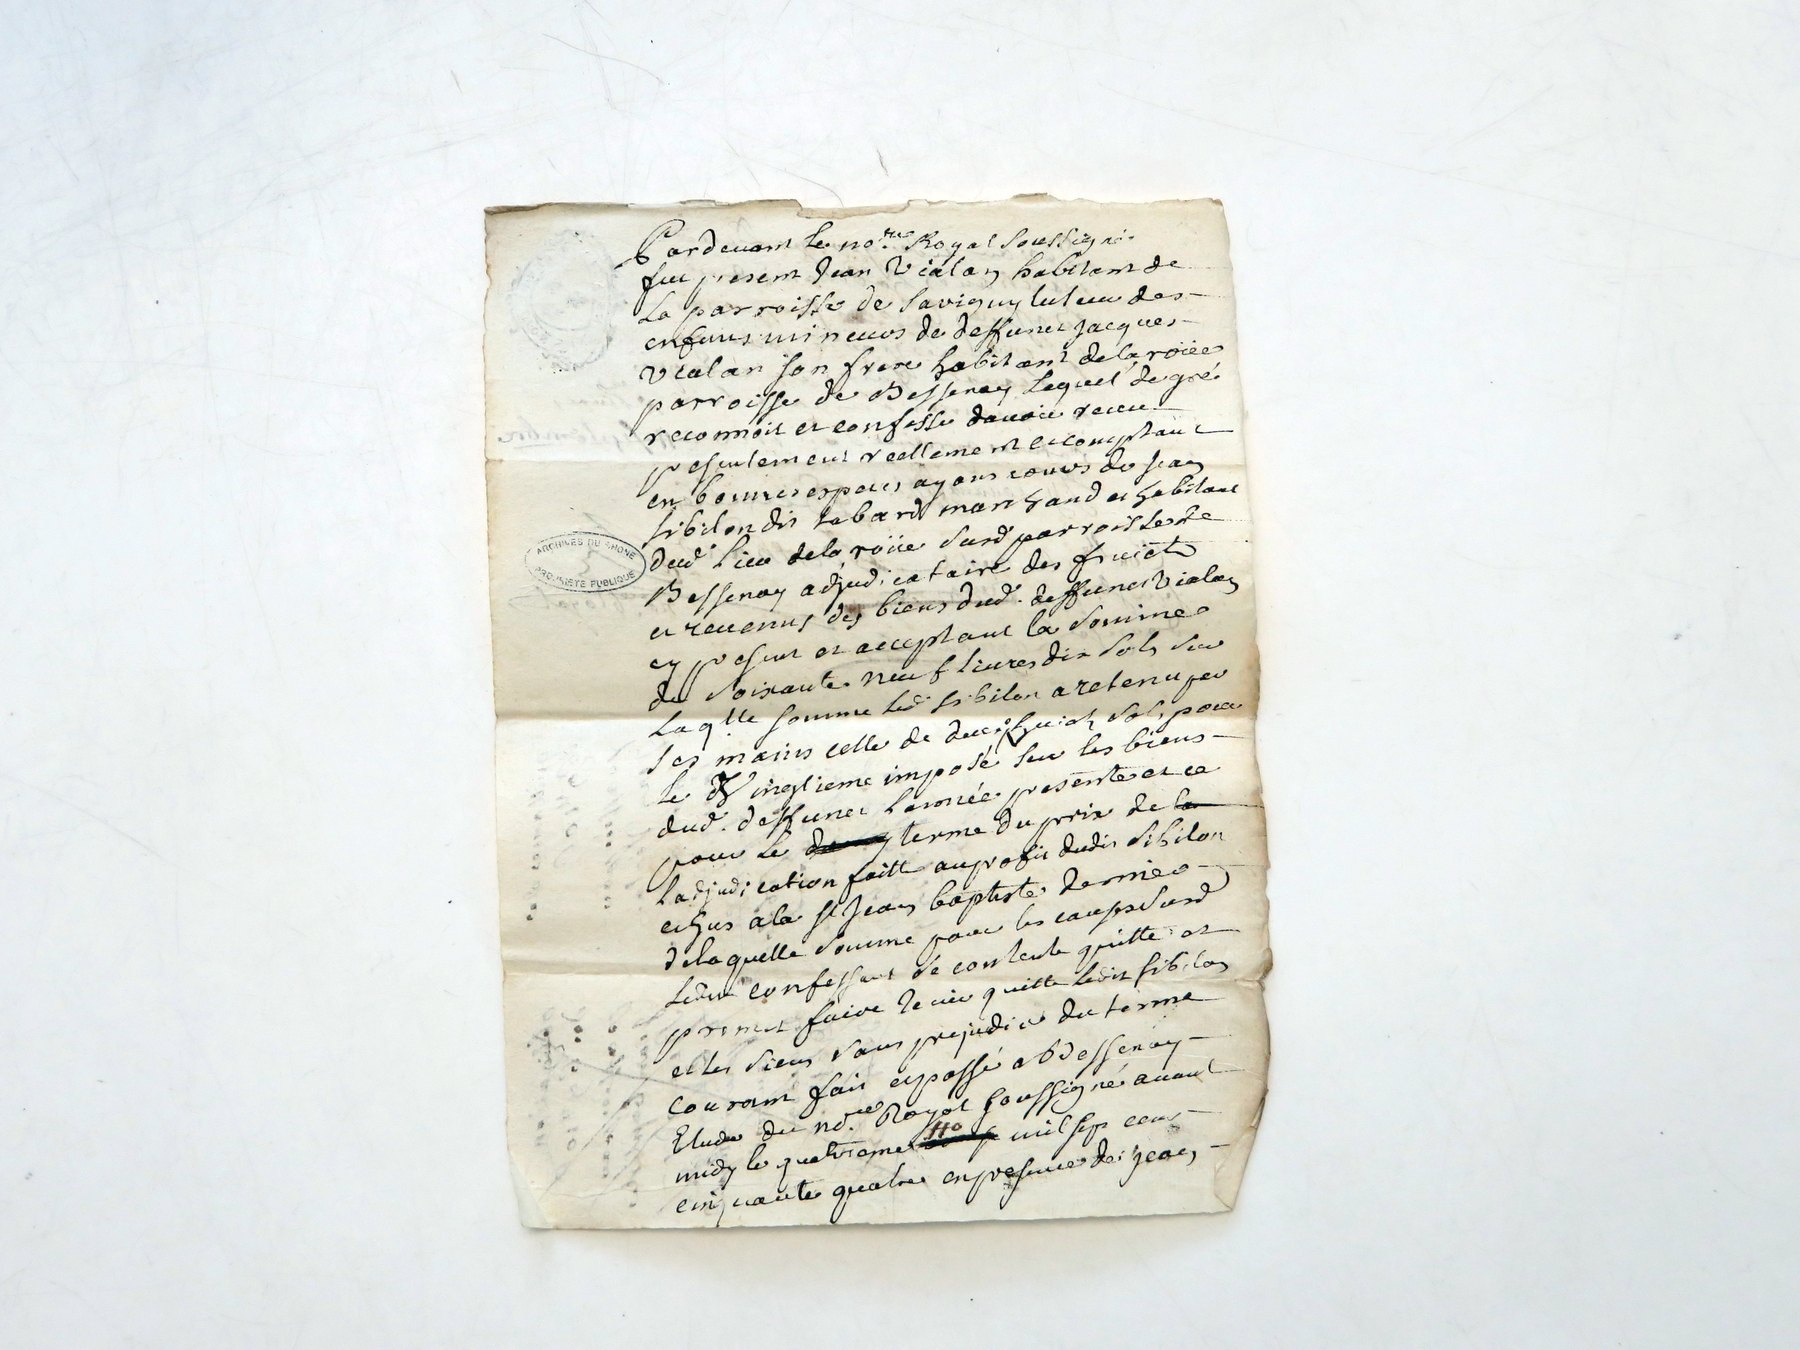 Pardevant le no.re Royal soussigné
fut present Jean Vialan habitant de
La parroisse de Savigny tuteur des
enfans mineurs de deffunct Jacques
Vialan son frere habitant dela roüee
parroisse de Bessenay Lequel de gré
reconnoit et confesse davoir receu
presentement reellement et comptant
en bonnes especes ayans cours de Jean
Sibilon dit Tabard marchand et habitant
dud. Lieu dela roüee Susd. parroisse de
Bessenay adjudicataire des fruicts
et revenus des biens dud. deffunct Vialan
cy present et acceptant la Somme
de Soixante neuf livres dix Sols Sur
Laq.lle somme led. Sibilon a retenu par
ses mains celle de huict Sols pour
Le Vingtieme imposé Sur les biens
dud. deffunct Lannée presente et ce
pour le terme du prix de la
Ladjudication faitte au profit dudit Sibilon
echus a la St Jean baptiste dernier
delaquelle Somme pour les causes Susd
Ledit confessant Se contente quitte et
promet faire tenir quitte Ledit Sibilon
et les Siens Sans prejudice du terme
courant fait et passé a Bessenay
Etude du no.re Royal Soussigné avant
midy le quatrieme mil sept cens
cinquante quatre en presence de Jean
ARCHIVES DU RHONE
PROPRIETE PUBLIQUE